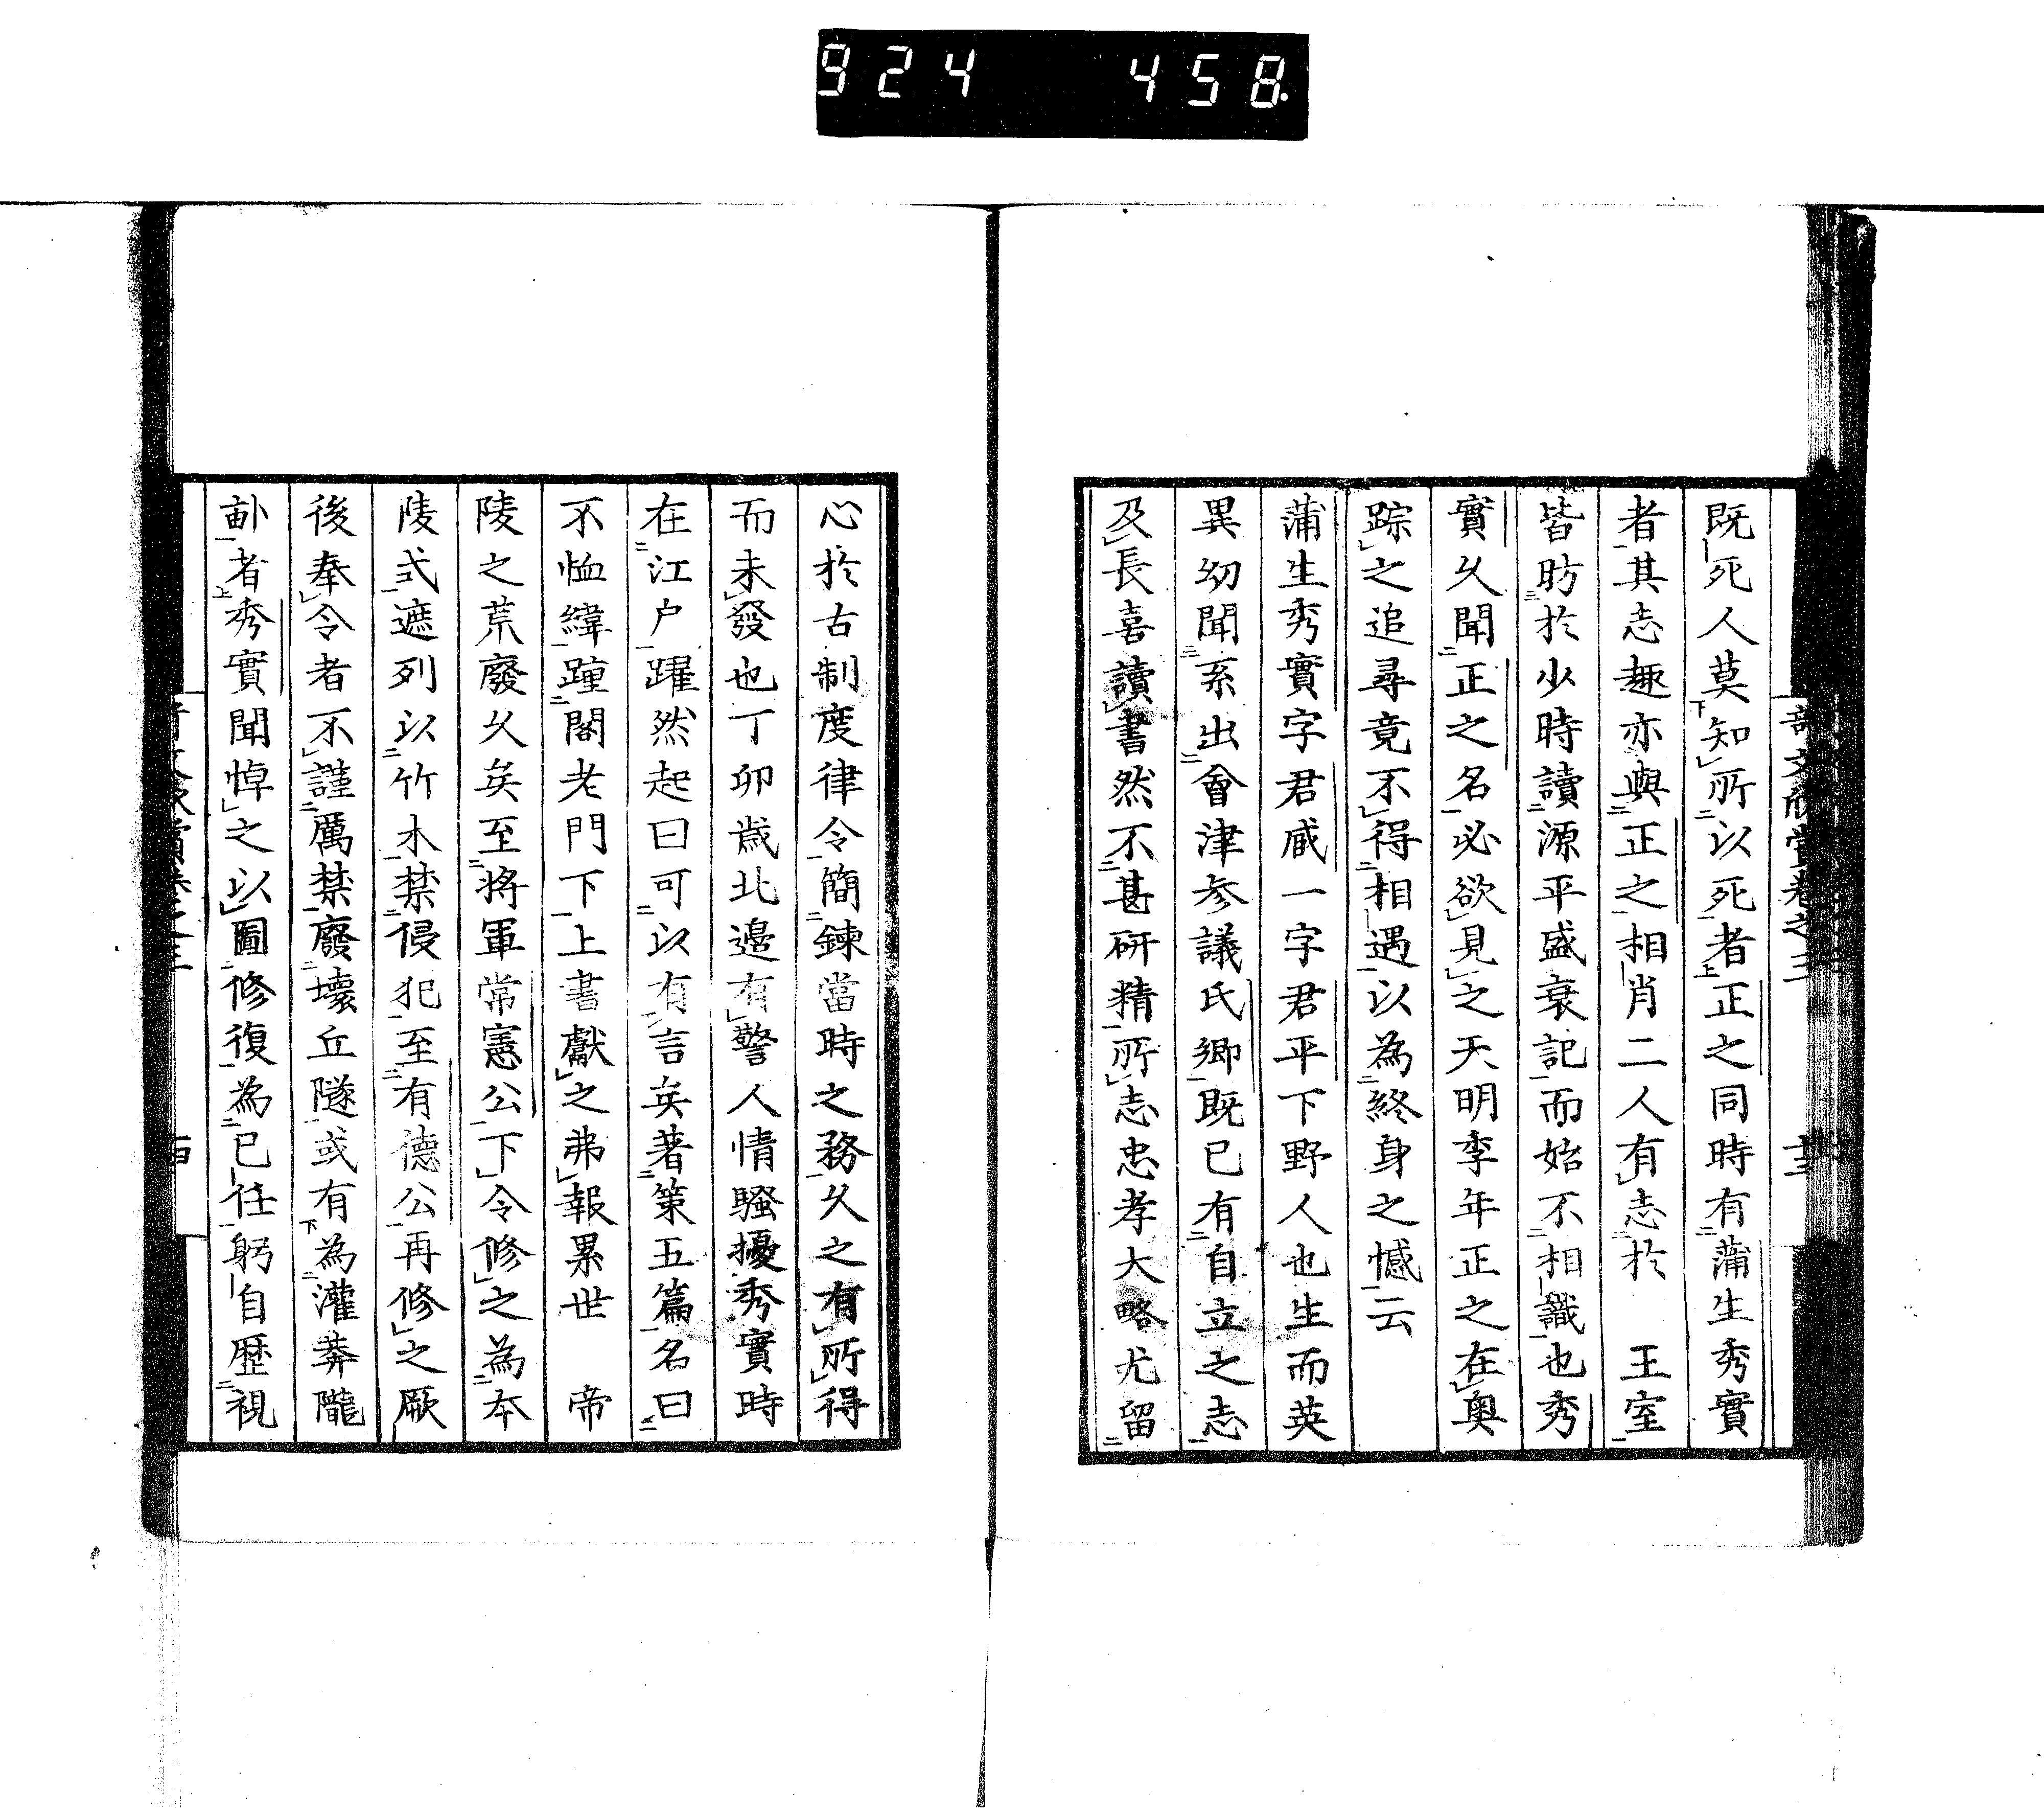 924 458.
既死人莫知所以死者正之同時有蒲生秀實
者其志趣亦與正之相肖二人有志於 王室
皆昉於少時讀源平盛衰記而始不相識也秀
實久聞正之名必欲見之天明季年正之在奥
踪之追尋竟不得相遇以為終身之憾云
蒲生秀實字君臧一字君平下野人也生而英
異幼聞系出會津参議氏郷既已有自立之志
及長喜讀書然不甚研精所志忠孝大略尤留
心於古制度律令簡鍊當時之務久之有所得
而未發也丁卯歳北邉有警人情騒擾秀實時
在江户躍然起曰可以有言矣著策五篇名曰
不恤緯踵閣老門下上書獻之弗報累世 帝
陵之荒廢久矣至將軍常憲公下令修之為本
陵式遮列以竹木禁侵犯至有德公再修之厥
後奉令者不謹厲禁廢壞丘隧或有為灌莽隴
畝者秀實聞悼之以圖修復為已任躬自歴視